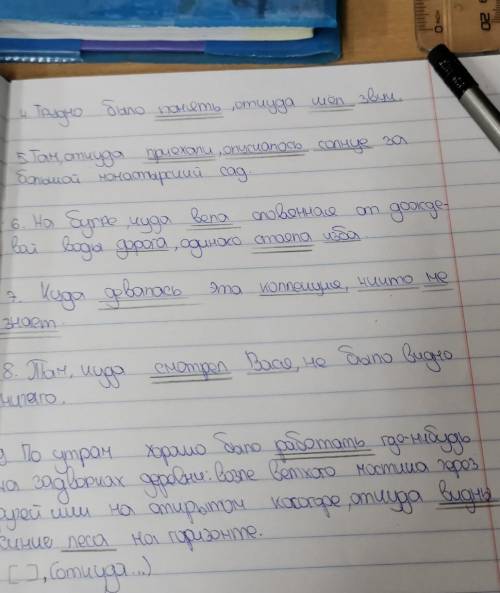 4. Трудно было понять, откуда шёл звук.
5. Там, откуда приехали, опускалось солнце за
большой монастырский сад.
6. На бугре, куда вела оловянная от дожде-
вой воды дорога, одиноко стояла изба
7. Куда девалась эта коллекция, никто не
знает.
8. Там, куда смотрел Вася, не было видно
ничего.
9 По утрам хорошо было работать где-нибудь
на задворках деревни: возле ветхого мостика через
ручей или на открытом косогоре, откуда видны
синие леса на горизонте.
[ ], (откуда...)